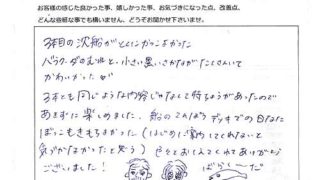 お客様の感じた良かった事、嬉しかった事、お気づきになった点、改善点、
どんな些細な事でも構いません、どうぞお聞かせ下さいませ。
3本目の沈船がとくにかっこよかった
バラクーダのむれと小さい黒いさかながたくさんいて
かわいかった
3本とも同じような内容じゃなくて特ちょうがあったので
あきずに楽しめました。船の2かいデッキでの日なた
ぼっこもきもちよかった(はじめに案内してくれないと
気づかなかったと思う)色々とおしえてくれてありがとう
ございました!
ばらくーだ